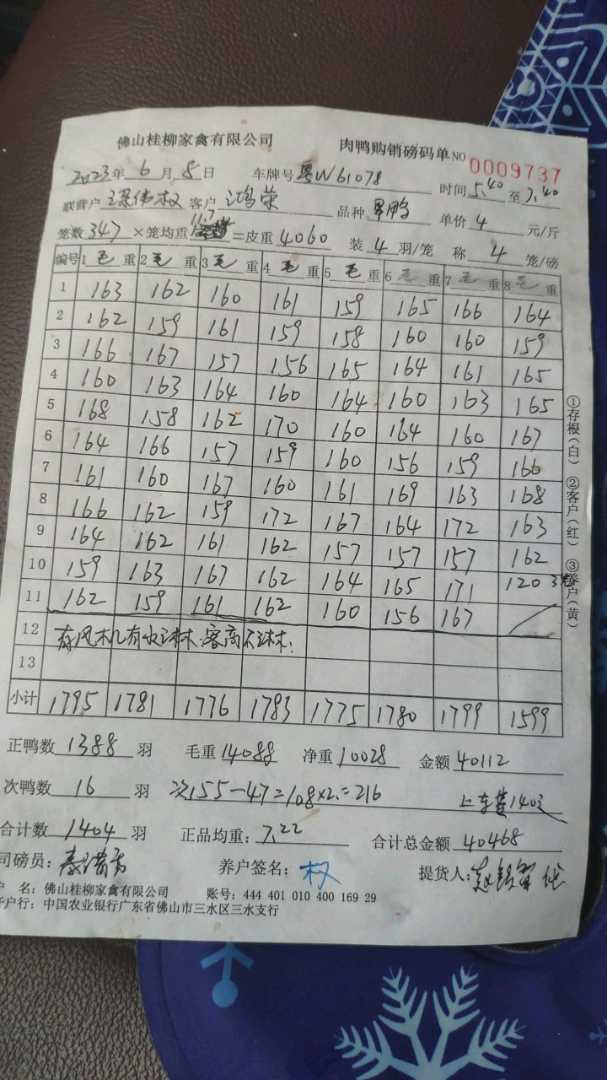 佛山桂柳家禽有限公司 肉鸭购销磅码单 NO 0009737
2023年 6 月 8 日 车牌号 粤W61078 时间 5.40 至 7.40
联营户 客户 鸿荣 品种 单价 4 元/斤
笼数 347 ×笼均重 11.7 =皮重 4060 装 4 羽/笼 称 4 笼/磅
编号 1 毛 重 2 毛 重 3 毛 重 4 毛 重 5 毛 重 6 毛 重 7 毛 重 8 毛 重
1 163 162 160 161 159 165 166 164
2 162 159 161 159 158 160 160 159
3 166 167 157 156 165 164 161 165
4 160 163 164 160 164 160 163 165
5 168 158 162 170 160 164 160 167
6 164 166 157 159 160 156 159 166
7 161 160 167 160 161 169 163 168
8 166 162 159 172 167 164 172 163
9 164 162 161 162 157 157 157 162
10 159 163 167 162 164 165 171 120
11 162 159 161 162 160 156 167
12 有风机有水淋,客商不淋!
13
小计 1795 1781 1776 1783 1775 1780 1799 1599
正鸭数 1388 羽 毛重 14088 净重 10028 金额 40112
次鸭数 16 羽 次155-47=108×2=216 上车费140元
合计数 1404 羽 正品均重: 7.22 合计总金额 40468
司磅员: 养户签名: 权 提货人:
户 名: 佛山桂柳家禽有限公司 账号: 444 401 010 400 169 29
开户行: 中国农业银行广东省佛山市三水区三水支行
①存根(白) ②客户(红) ③养户(黄)